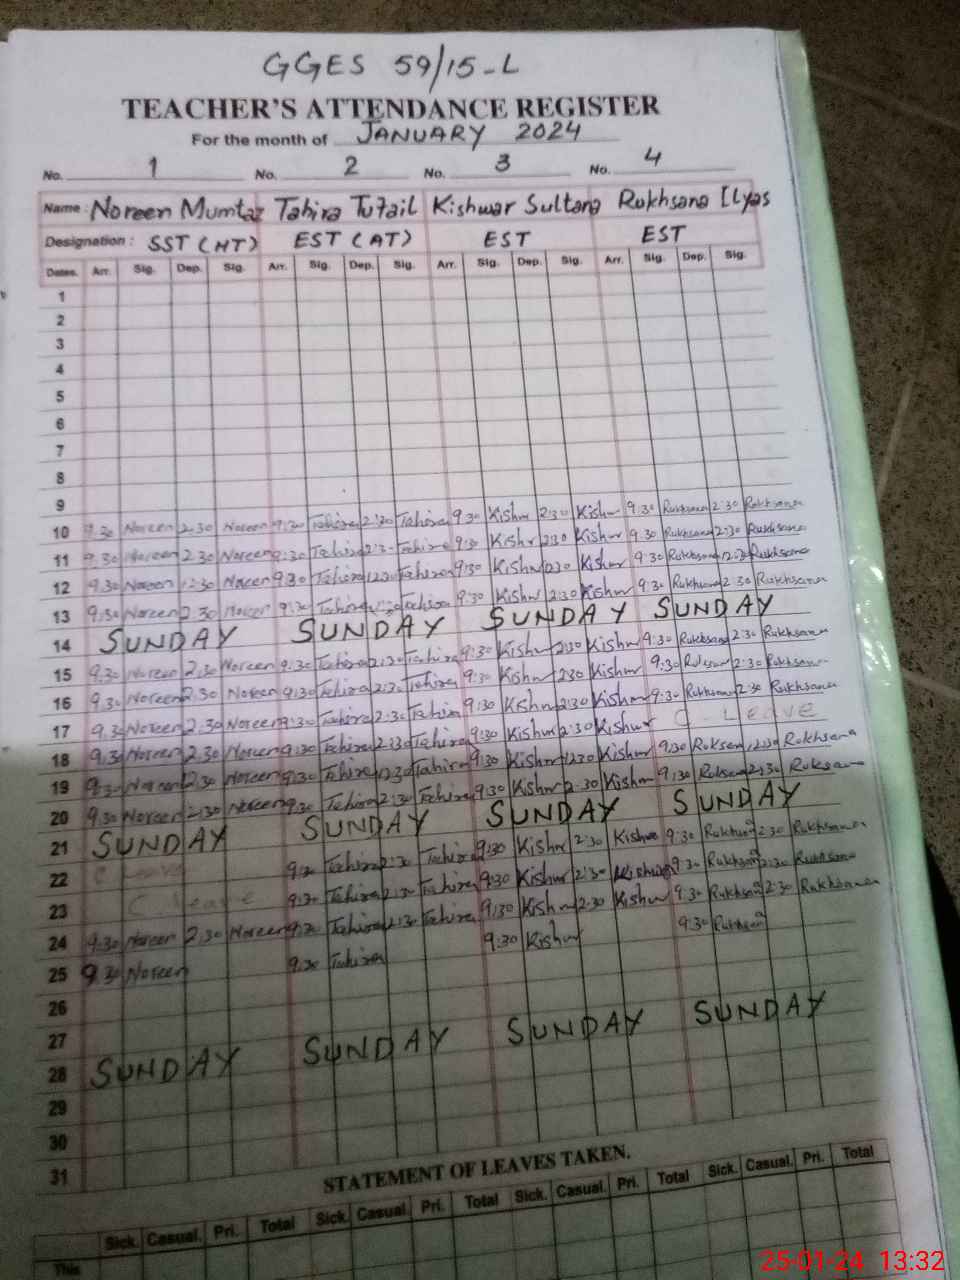 GGES 59/15-L
TEACHER'S ATTENDANCE REGISTER
For the month of JANUARY 2024
No. 1 No. 2 No. 3 No. 4
Name : Noreen Mumtaz Tahira Tufail Kishwar Sultana Rukhsana Ilyas
Designation : SST (HT) EST (AT) EST EST
Dates. Arr. Sig. Dep. Sig. Arr. Sig. Dep. Sig. Arr. Sig. Dep. Sig. Arr. Sig. Dep. Sig.
1
2
3
4
5
6
7
8
9
10 9.30 Noreen 2.30 Noreen 9:30 Tahira 2:30 Tahira 9:30 Kishw 2:30 Kishw 9:30 Rukhsana 2:30 Rukhsana
11 9.30 Noreen 2.30 Noreen 9:30 Tahira 2:30 Tahira 9:30 Kishw 2:30 Kishw 9:30 Rukhsana 2:30 Rukhsana
12 9.30 Noreen 12:30 Noreen 9:30 Tahira 12:30 Tahira 9:30 Kishw 12:30 Kishw 9:30 Rukhsana 12:30 Rukhsana
13 9.30 Noreen 2.30 Noreen 9:30 Tahira 2:30 Tahira 9:30 Kishw 2:30 Kishw 9:30 Rukhsana 2:30 Rukhsana
14 SUNDAY SUNDAY SUNDAY SUNDAY
15 9.30 Noreen 2.30 Noreen 9:30 Tahira 2:30 Tahira 9:30 Kishw 2:30 Kishw 9:30 Rukhsana 2:30 Rukhsana
16 9.30 Noreen 2.30 Noreen 9:30 Tahira 2:30 Tahira 9:30 Kishw 2:30 Kishw 9:30 2:30 Rukhsana
17 9.30 Noreen 2.30 Noreen 9:30 Tahira 2:30 Tahira 9:30 Kishw 2:30 Kishw 9:30 Rukhsana 2:30 Rukhsana
18 9.30 Noreen 2.30 Noreen 9:30 Tahira 2:30 Tahira 9:30 Kishwr 2:30 Kishwr C - LEAVE
19 9.30 Noreen 12:30 Noreen 9:30 Tahira 12:30 Tahira 9:30 Kishw 12:30 Kishw 9:30 Ruksana 12:30 Rukhsana
20 9.30 Noreen 2:30 Noreen 9:30 Tahira 2:30 Tahira 9:30 Kishw 2:30 Kishw 9:30 Ruksana 2:30 Ruksana
21 SUNDAY SUNDAY SUNDAY SUNDAY
22 C Leave 9:30 Tahira 2:30 Tahira 9:30 Kishw 2:30 Kishw 9:30 Rukhsana 2:30 Rukhsana
23 C Leave 9:30 Tahira 2:30 Tahira 9:30 Kishw 2:30 Kishw 9:30 Rukhsana 2:30 Rukhsana
24 9.30 Noreen 2.30 Noreen 9:30 Tahira 2:30 Tahira 9:30 Kishw 2:30 Kishw 9:30 Rukhsana 2:30 Rukhsana
25 9.30 Noreen 9:30 Tahira 9:30 Kishw 9:30 Rukhsana
26
27
28 SUNDAY SUNDAY SUNDAY SUNDAY
29
30
31
STATEMENT OF LEAVES TAKEN.
Sick. Casual. Pri. Total Sick. Casual. Pri. Total Sick. Casual. Pri. Total Sick. Casual. Pri. Total
This
25-01-24 13:32